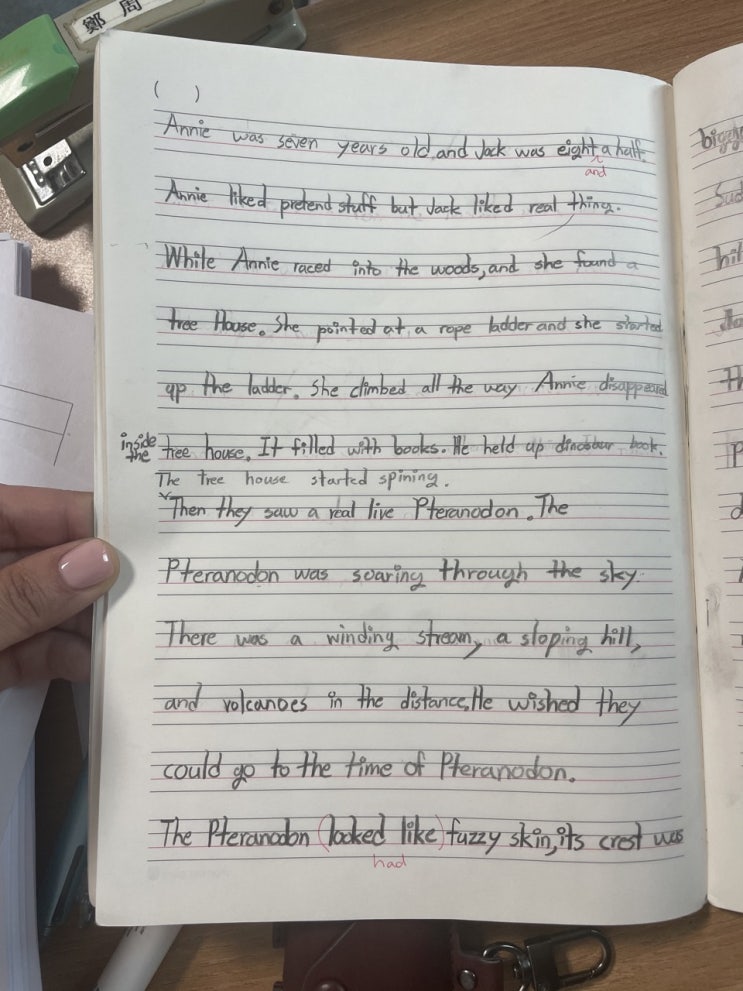 鄭 周
( )
Annie was seven years old, and Jack was eight a half.
and
Annie liked pretend stuff but Jack liked real thing.
While Annie raced into the woods, and she found a
tree House. She pointed at a rope ladder and she started
up the ladder. She climbed all the way Annie disappeared
inside the tree house. It filled with books. He held up dinosaur book.
The tree house started spining.
Then they saw a real live Pteranodon. The
Pteranodon was soaring through the sky.
There was a winding stream, a sloping hill,
and volcanoes in the distance. He wished they
could go to the time of Pteranodon.
The Pteranodon (looked like) fuzzy skin, its crest was
had